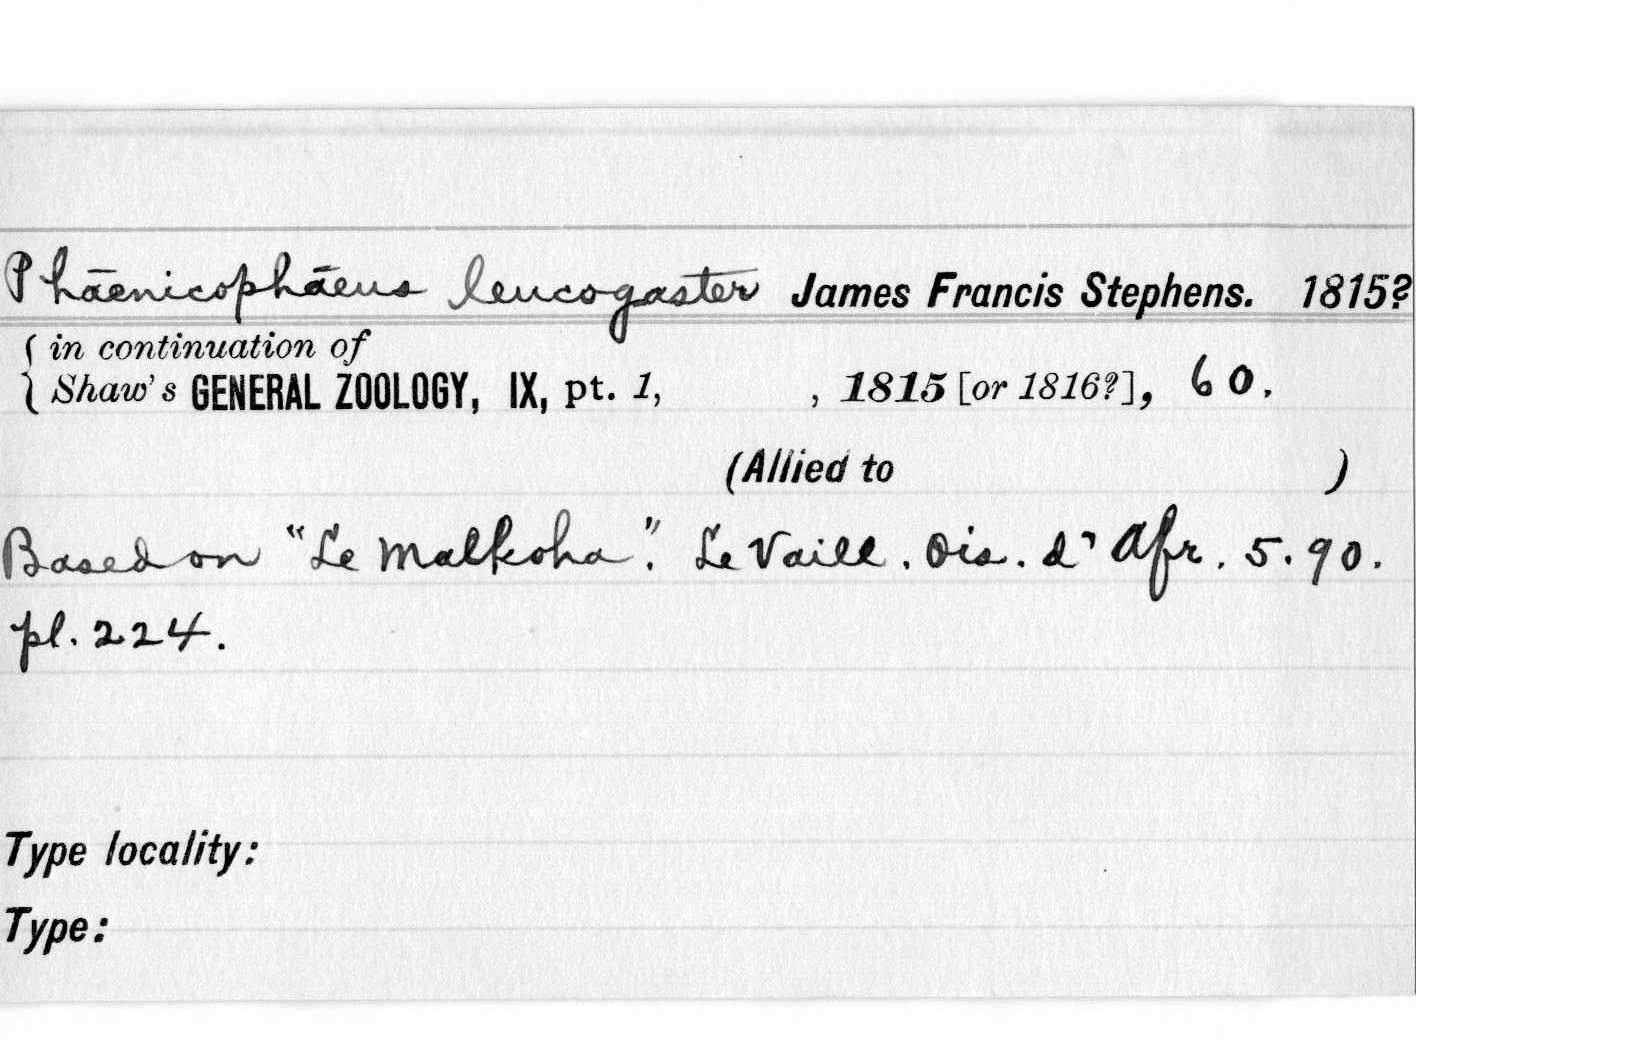 Phāenicophāeus leucogaster James Francis Stephens. 1815?
{ in continuation of
Shaw's GENERAL ZOOLOGY, IX, pt. 1, , 1815 [or 1816?], 60.
(Allied to )
Based on "Le Malkoha". Le Vaill. Ois. d'Afr. 5. 90.
pl. 224.
Type locality:
Type: